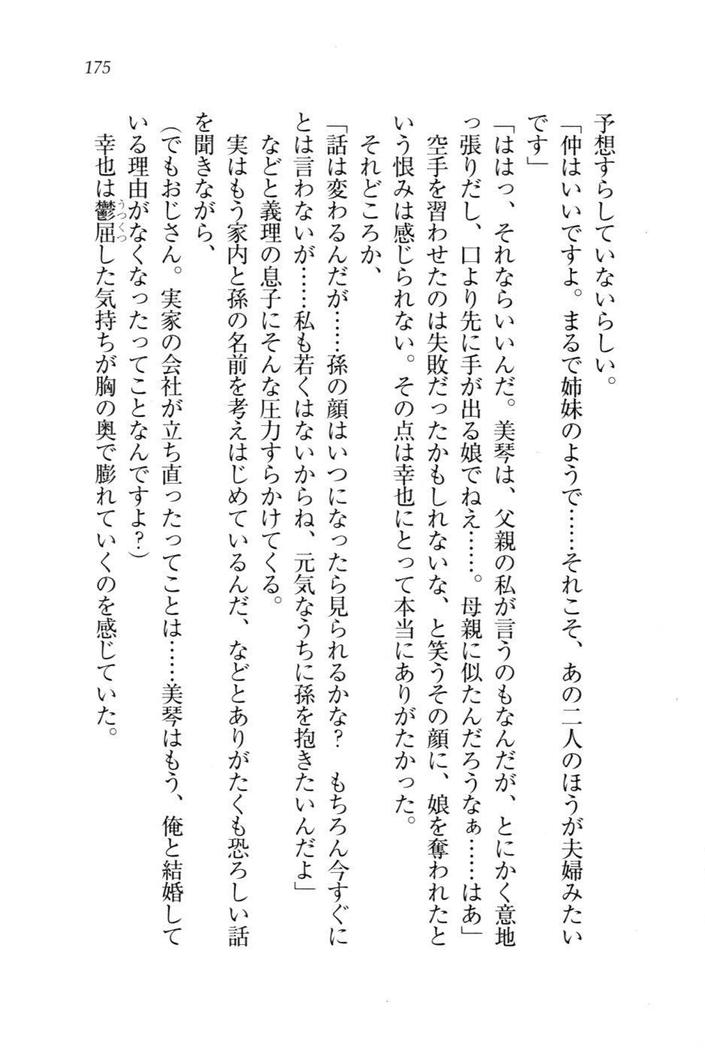 175
予想すらしていないらしい。
「仲はいいですよ。まるで姉妹のようで……それこそ、あの二人のほうが夫婦みたい
です」
「ははっ、それならいいんだ。美琴は、父親の私が言うのもなんだが、とにかく意地
っ張りだし、口より先に手が出る娘でねえ……。母親に似たんだろうなぁ……はあ」
空手を習わせたのは失敗だったかもしれないな、と笑うその顔に、娘を奪われたと
いう恨みは感じられない。その点は幸也にとって本当にありがたかった。
それどころか、
「話は変わるんだが……孫の顔はいつになったら見られるかな?　もちろん今すぐに
とは言わないが……私も若くはないからね、元気なうちに孫を抱きたいんだよ」
などと義理の息子にそんな圧力すらかけてくる。
実はもう家内と孫の名前を考えはじめているんだ、などとありがたくも恐ろしい話
を聞きながら、
(でもおじさん。実家の会社が立ち直ったってことは……美琴はもう、俺と結婚して
いる理由がなくなったってことなんですよ?)
幸也は鬱屈した気持ちが胸の奥で膨れていくのを感じていた。
うっくつ